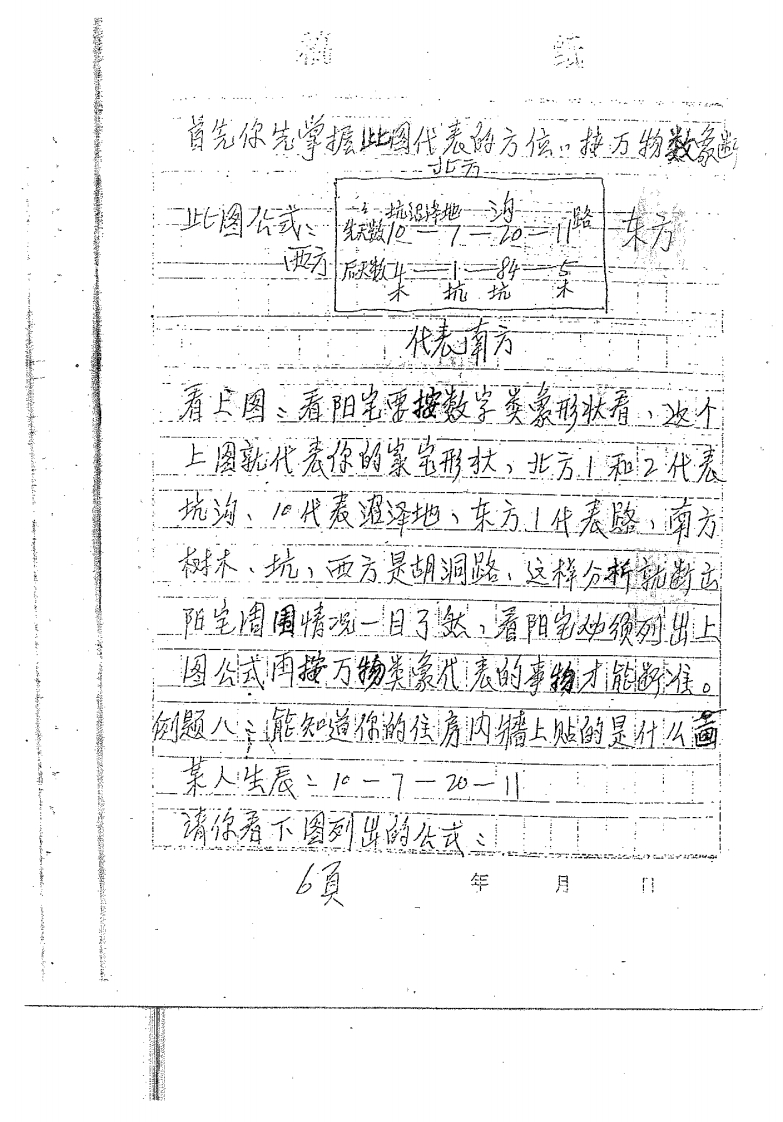 稿 纸
首先你先掌握此图代表的方位。按万物数象断
北方
此图公式:
西方
坑沼泽地 沟 路
先天数10—7—20—11
后天数4—1—84—5
木 坑 坑 木
东方
代表南方
看上图:看阳宅要按数字类象形状看、这个
上图就代表你的家宅形状、北方1和2代表
坑沟、10代表沼泽地、东方1代表路、南方
树木、坑、西方是胡洞路、这样分析就断出
阳宅周围情况一目了然,看阳宅必须列出上
图公式再按万物类象代表的事物才能断准。
例题八:能知道你的住房内墙上贴的是什么画
某人生辰:10—7—20—11
请你看下图列出的公式:
6頁
年 月 日